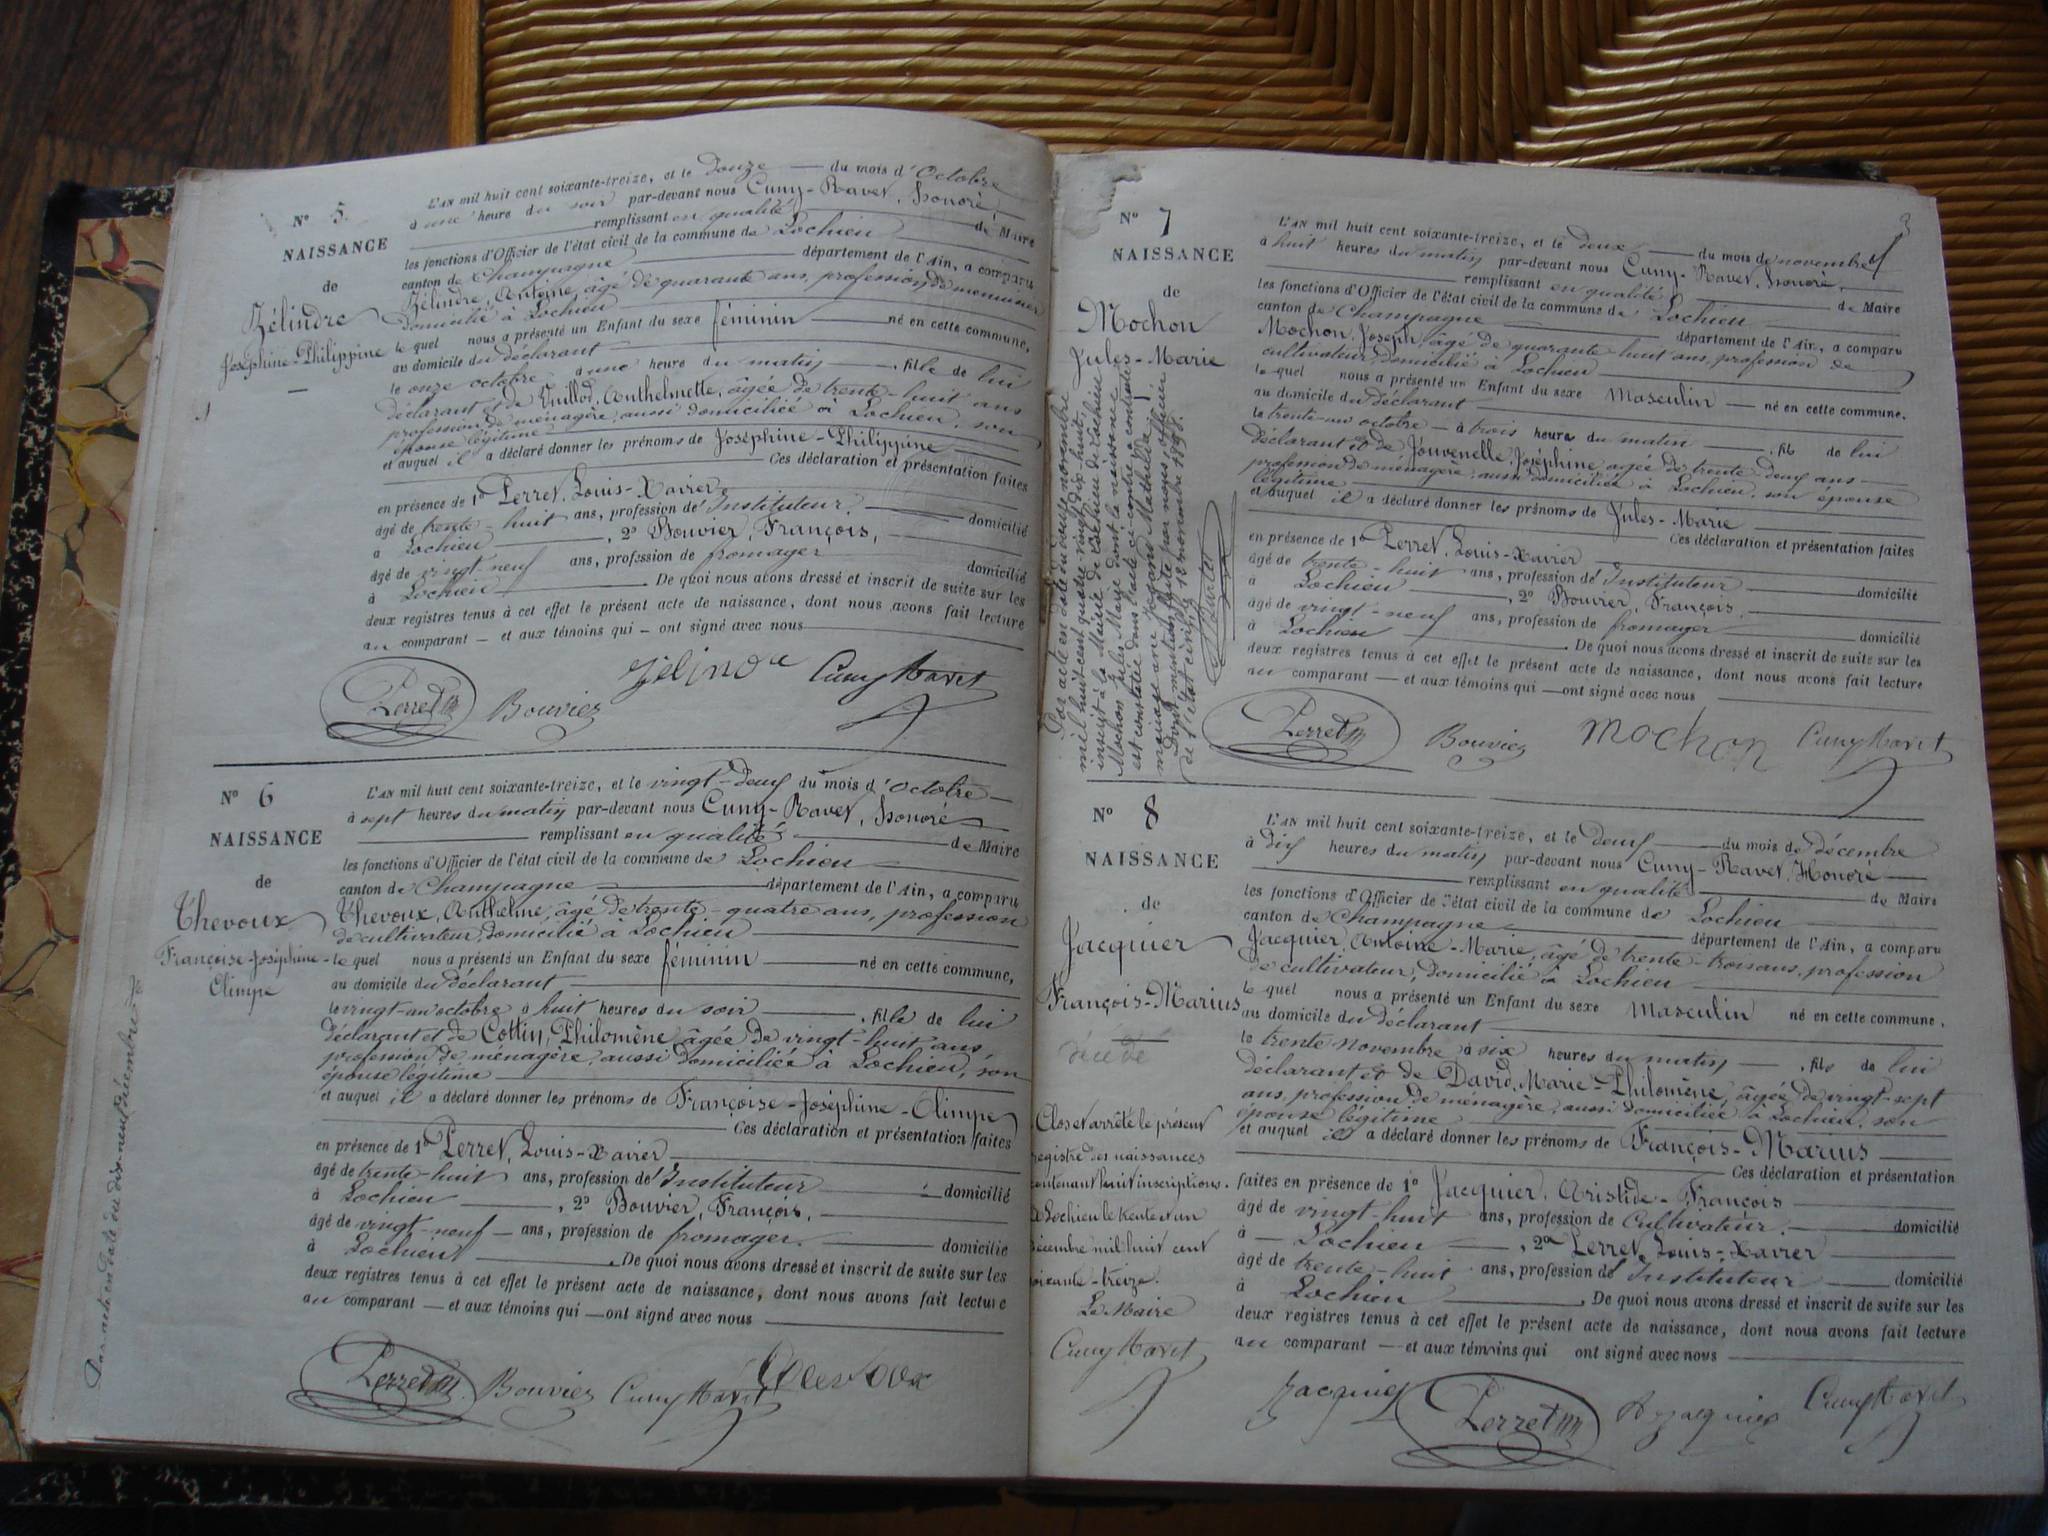 N° 5
NAISSANCE
de
Zélindre
Joséphine-Philippine
L'AN mil huit cent soixante-treize, et le douze du mois d'Octobre
à une heure du soir par-devant nous Cuny-Ravet, Honoré,
remplissant en qualité de Maire
les fonctions d'Officier de l'état civil de la commune de Lochieu
canton de Champagne département de l'Ain, a comparu
Zélindre, Antoine, âgé de quarante ans, profession de menuisier
domicilié à Lochieu
le quel nous a présenté un Enfant du sexe féminin né en cette commune,
au domicile du déclarant
le onze octobre à une heure du matin, fille de lui
déclarant et de Vuillod, Anthelmette, âgée de trente-huit ans
profession de ménagère, aussi domiciliée à Lochieu, son
épouse légitime
et auquel il a déclaré donner les prénoms de Joséphine-Philippine
Ces déclaration et présentation faites
en présence de 1° Perret, Louis-Xavier
âgé de trente-huit ans, profession d'Instituteur, domicilié
à Lochieu, 2° Bouvier, François,
âgé de vingt-neuf ans, profession de fromager domicilié
à Lochieu De quoi nous avons dressé et inscrit de suite sur les
deux registres tenus à cet effet le présent acte de naissance, dont nous avons fait lecture
au comparant et aux témoins qui ont signé avec nous
Zélindre Cuny Ravet
Perret Bouvier
N° 6
NAISSANCE
de
Thevoux
Françoise-Joséphine-
Olimpe
L'AN mil huit cent soixante-treize, et le vingt-deux du mois d'Octobre
à sept heures du matin par-devant nous Cuny-Ravet, Honoré
remplissant en qualité de Maire
les fonctions d'Officier de l'état civil de la commune de Lochieu
canton de Champagne département de l'Ain, a comparu
Thevoux, Anthelme, âgé de trente-quatre ans, profession
de cultivateur, domicilié à Lochieu
le quel nous a présenté un Enfant du sexe féminin né en cette commune,
au domicile du déclarant
le vingt-un octobre à huit heures du soir, fille de lui
déclarant et de Cottin, Philomène âgée de vingt-huit ans,
profession de ménagère, aussi domiciliée à Lochieu, son
épouse légitime
et auquel il a déclaré donner les prénoms de Françoise-Joséphine-Olimpe
Ces déclaration et présentation faites
en présence de 1° Perret, Louis-Xavier
âgé de trente-huit ans, profession d'Instituteur domicilié
à Lochieu, 2° Bouvier, François,
âgé de vingt-neuf ans, profession de fromager domicilié
à Lochieu De quoi nous avons dressé et inscrit de suite sur les
deux registres tenus à cet effet le présent acte de naissance, dont nous avons fait lecture
au comparant et aux témoins qui ont signé avec nous
Perret Bouvier Cuny Ravet Thevoux
Par acte en date du dix-neuf décembre
3
N° 7
NAISSANCE
de
Mochon
Jules-Marie
Par acte en date du onze novembre
mil huit cent quatre vingt dix huit,
inscrit à la Mairie de Lochieu
Mochon Jules Marie dont la naissance
est constatée dans l'acte ci-contre a contracté
mariage avec
Dont mention faite par nous, officier
de l'état civil, le 12 novembre 1898.
L'AN mil huit cent soixante-treize, et le deux du mois de novembre
à huit heures du matin par-devant nous Cuny-Ravet, Honoré,
remplissant en qualité de Maire
les fonctions d'Officier de l'état civil de la commune de Lochieu
canton de Champagne département de l'Ain, a comparu
Mochon, Joseph, âgé de quarante-huit ans, profession de
cultivateur, domicilié à Lochieu
le quel nous a présenté un Enfant du sexe Masculin né en cette commune,
au domicile du déclarant
le trente-un octobre à trois heures du matin, fils de lui
déclarant et de Jouvenelle, Joséphine, agée de trente-deux ans
profession de ménagère, aussi domiciliée à Lochieu, son épouse
légitime
et auquel il a déclaré donner les prénoms de Jules-Marie
Ces déclaration et présentation faites
en présence de 1° Perret, Louis-Xavier
âgé de trente-huit ans, profession d'Instituteur domicilié
à Lochieu, 2° Bouvier, François,
âgé de vingt-neuf ans, profession de fromager domicilié
à Lochieu De quoi nous avons dressé et inscrit de suite sur les
deux registres tenus à cet effet le présent acte de naissance, dont nous avons fait lecture
au comparant et aux témoins qui ont signé avec nous
Perret Bouvier Mochon Cuny Ravet
N° 8
NAISSANCE
de
Jacquier
François-Marius
décédé
Clos et arrêté le présent
registre des naissances
contenant huit inscriptions.
à Lochieu le trente et un
décembre mil huit cent
soixante-treize.
Le Maire
Cuny Ravet
L'AN mil huit cent soixante-treize, et le deux du mois de décembre
à dix heures du matin par-devant nous Cuny-Ravet, Honoré
remplissant en qualité de Maire
les fonctions d'Officier de l'état civil de la commune de Lochieu
canton de Champagne département de l'Ain, a comparu
Jacquier, Antoine-Marie, âgé de trente-trois ans, profession
de cultivateur, domicilié à Lochieu
le quel nous a présenté un Enfant du sexe Masculin né en cette commune,
au domicile du déclarant
le trente novembre à six heures du matin, fils de lui
déclarant et de David, Marie-Philomène, âgée de vingt-sept
ans, profession de ménagère, aussi domiciliée à Lochieu, son
épouse légitime
et auquel il a déclaré donner les prénoms de François-Marius
Ces déclaration et présentation
faites en présence de 1° Jacquier, Aristide-François
âgé de vingt-huit ans, profession de Cultivateur, domicilié
à Lochieu, 2° Perret, Louis-Xavier
âgé de trente-huit ans, profession d'Instituteur domicilié
à Lochieu De quoi nous avons dressé et inscrit de suite sur les
deux registres tenus à cet effet le présent acte de naissance, dont nous avons fait lecture
au comparant et aux témoins qui ont signé avec nous
Jacquier Perret Jacquier Cuny Ravet